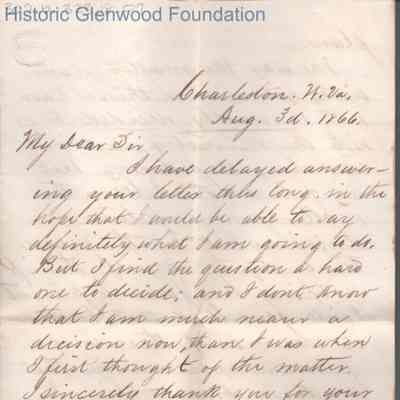 Historic Glenwood Foundation
Charleston. W. Va.
Aug. 3d. 1866.
My Dear Sir
I have delayed answer-
ing your letter thus long in the
hope that I would be able to say
definitely what I am going to do.
But I find the question a hard
one to decide; and I dont know
that I am much nearer a
decision now, than I was when
I first thought of the matter.
I sincerely thank you for your